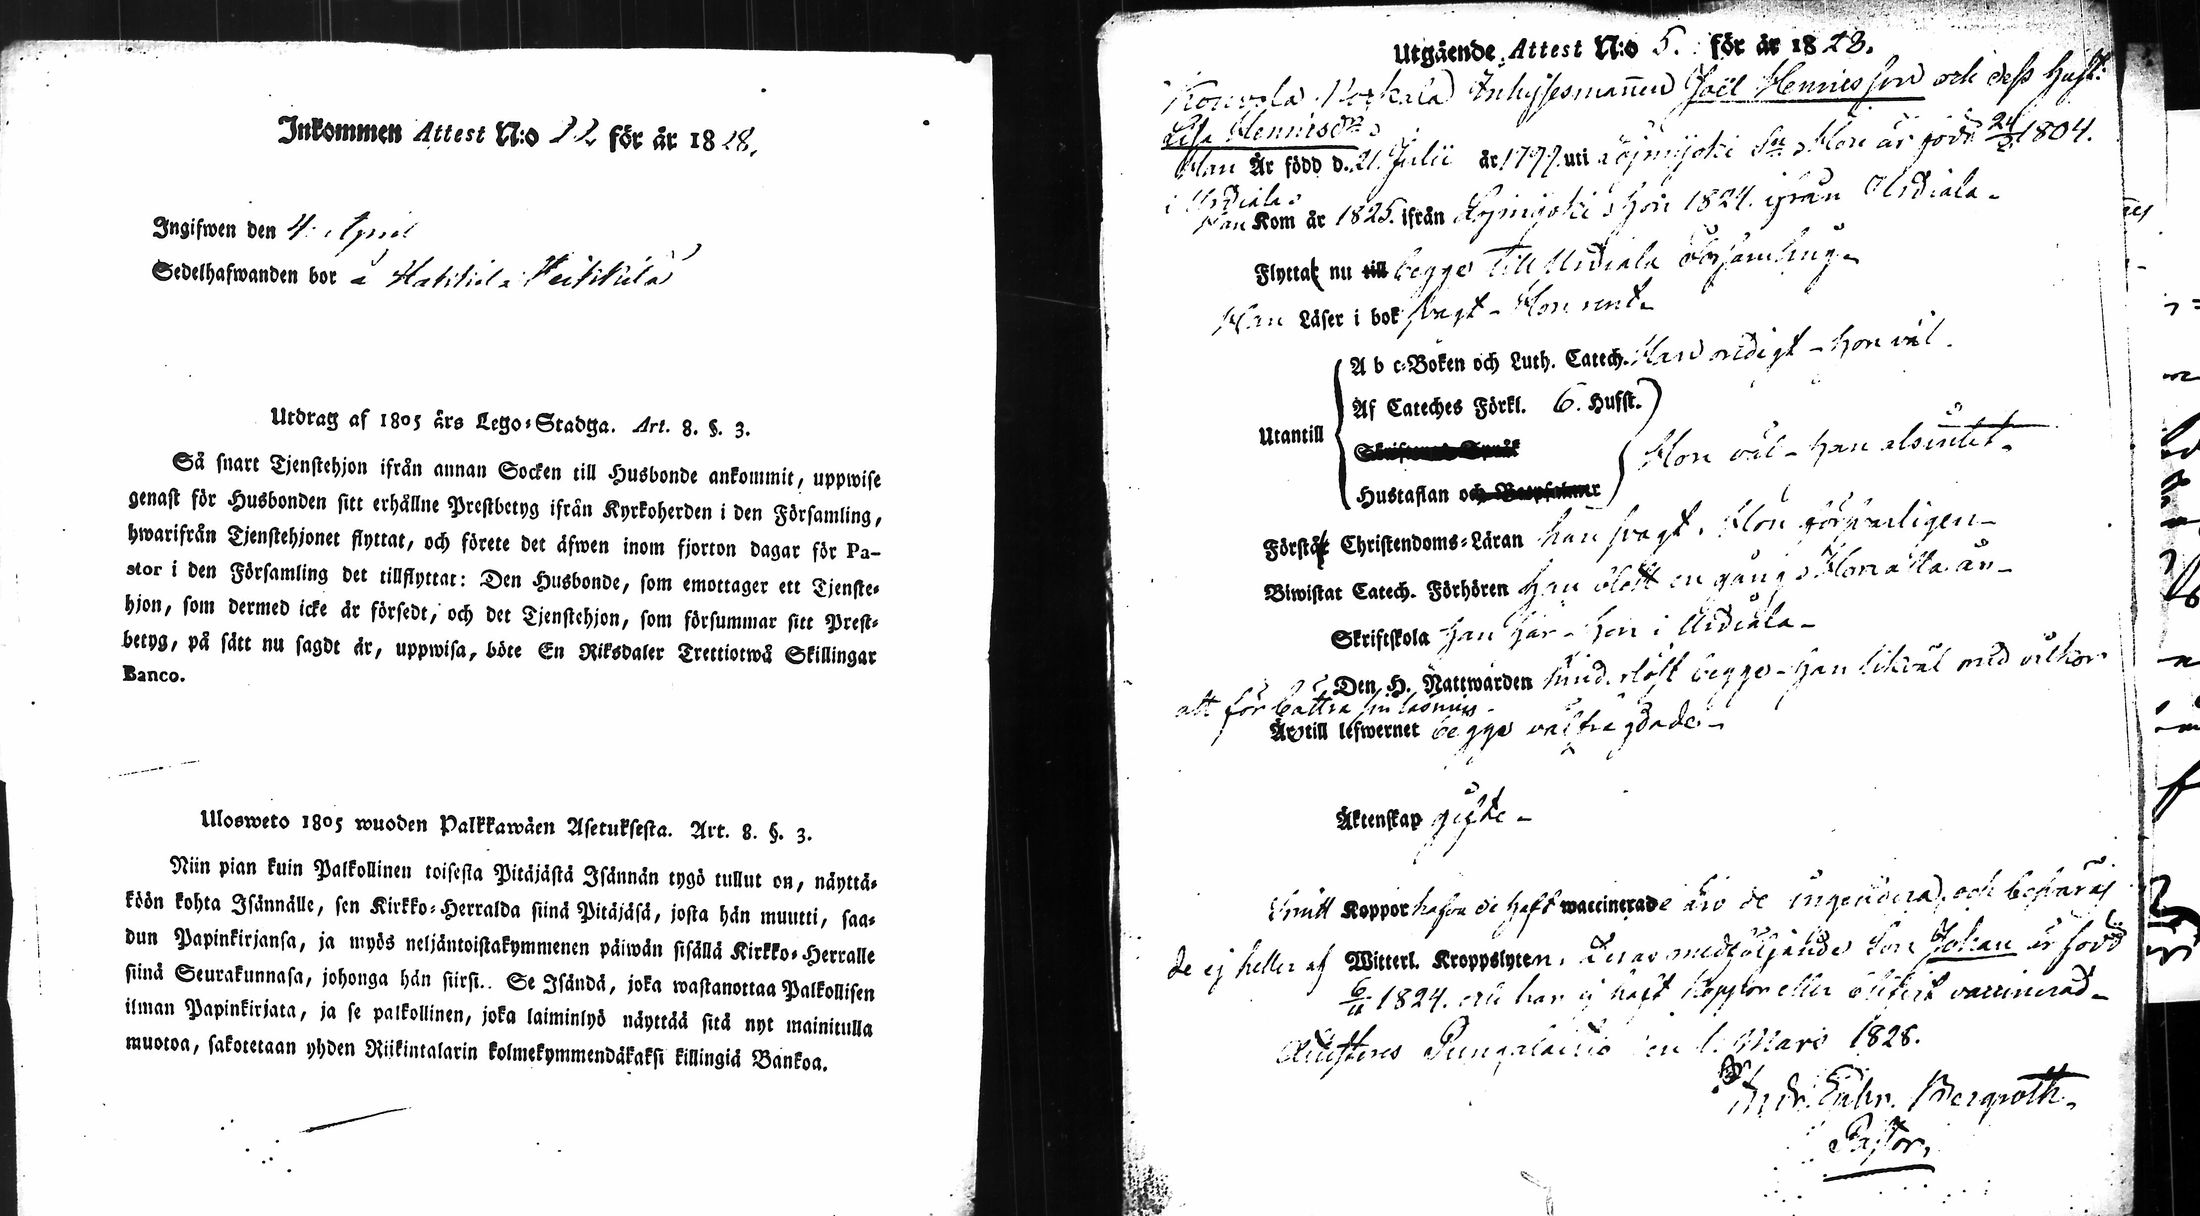 Inkommen Attest N:o 22 för år 1828.
Ingifwen den 4. April
Sedelhafwanden bor å
Utdrag af 1805 års Lego-Stadga. Art. 8. §. 3.
Så snart Tjenstehjon ifrån annan Socken till Husbonde ankommit, uppwise
genast för Husbonden sitt erhållne Prestbetyg ifrån Kyrkoherden i den Församling,
hwarifrån Tjenstehjonet flyttat, och förete det äfwen inom fjorton dagar för Pa-
stor i den Församling det tillflyttat: Den Husbonde, som emottager ett Tjenste-
hjon, som dermed icke är försedt, och det Tjenstehjon, som försummar sitt Prest-
betyg, på sätt nu sagdt är, uppwisa, böte En Riksdaler Trettiotwå Skillingar
Banco.
Ulosweto 1805 wuoden Palkkawäen Asetuksesta. Art. 8. §. 3.
Niin pian kuin Palkollinen toisesta Pitäjästä Isännän tygö tullut on, näyttä-
köön kohta Isännälle, sen Kirkko-Herralda siinä Pitäjäsä, josta hän muutti, saa-
dun Papinkirjansa, ja myös neljäntoistakymmenen päiwän sisällä Kirkko-Herralle
siinä Seurakunnasa, johonga hän siirsi.. Se Isändä, joka wastanottaa Palkollisen
ilman Papinkirjata, ja se palkollinen, joka laiminlyö näyttää sitä nyt mainitulla
muotoa, sakotetaan yhden Riikintalarin kolmekymmendäkaksi killingiä Bankoa.
Utgående Attest N:o 5. för år 1828.
Inhysesmannen Joël Hennisson och dess hust:
Lisa
Han Är född d. 21 Julii år 1799. uti Hon är född 24/2 1804.
i Urdiala.
Han Kom år 1825. ifrån Hon 1824. ifrån Urdiala -
Flytta nu till begge till Urdiala Församling -
Han Läser i bok swagt - Hon rent -
A b c-Boken och Luth. Catech. Han redigt - hon väl.
Af Cateches Förkl. 6. Hufst.
Utantill
Hon väl - han alsintet -
Hustaflan och
Förstå Christendoms-Läran han swagt. Hon försvarligen -
Biwistat Catech. Förhören han blott en gång, Hon
Skriftskola han här - hon i Urdiala -
Den H. Nattwarden begge - han likväl med vilkor
att förbättra sin läsning -
Äro till lefwernet begge välfrägdade -
Äktenskap gifte -
Koppor hafva de haft waccinerade äro de ingendera, och besväras
de ej heller af Witterl. Kroppslyten. Deras medföljande Son Johan är född
6/11 1824. och har ej haft koppor eller blifvit vaccinerad -
Pungalaitio den 1. Mars 1828.
Bergroth.
Pastor.